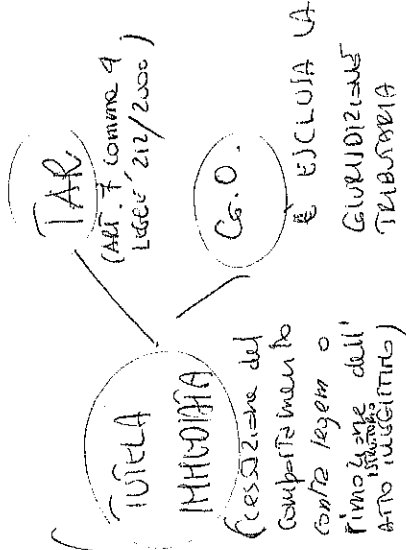 TUTELA
IMMEDIATA
(cessazione del
comportamento
contra legem o
rimozione dell'
ATTO ILLEGITTIMO)
TAR
(ART. 7 comma 4
LEGGE 212/2000)
G.O.
È ESCLUSA LA
GIURISDIZIONE
TRIBUTARIA